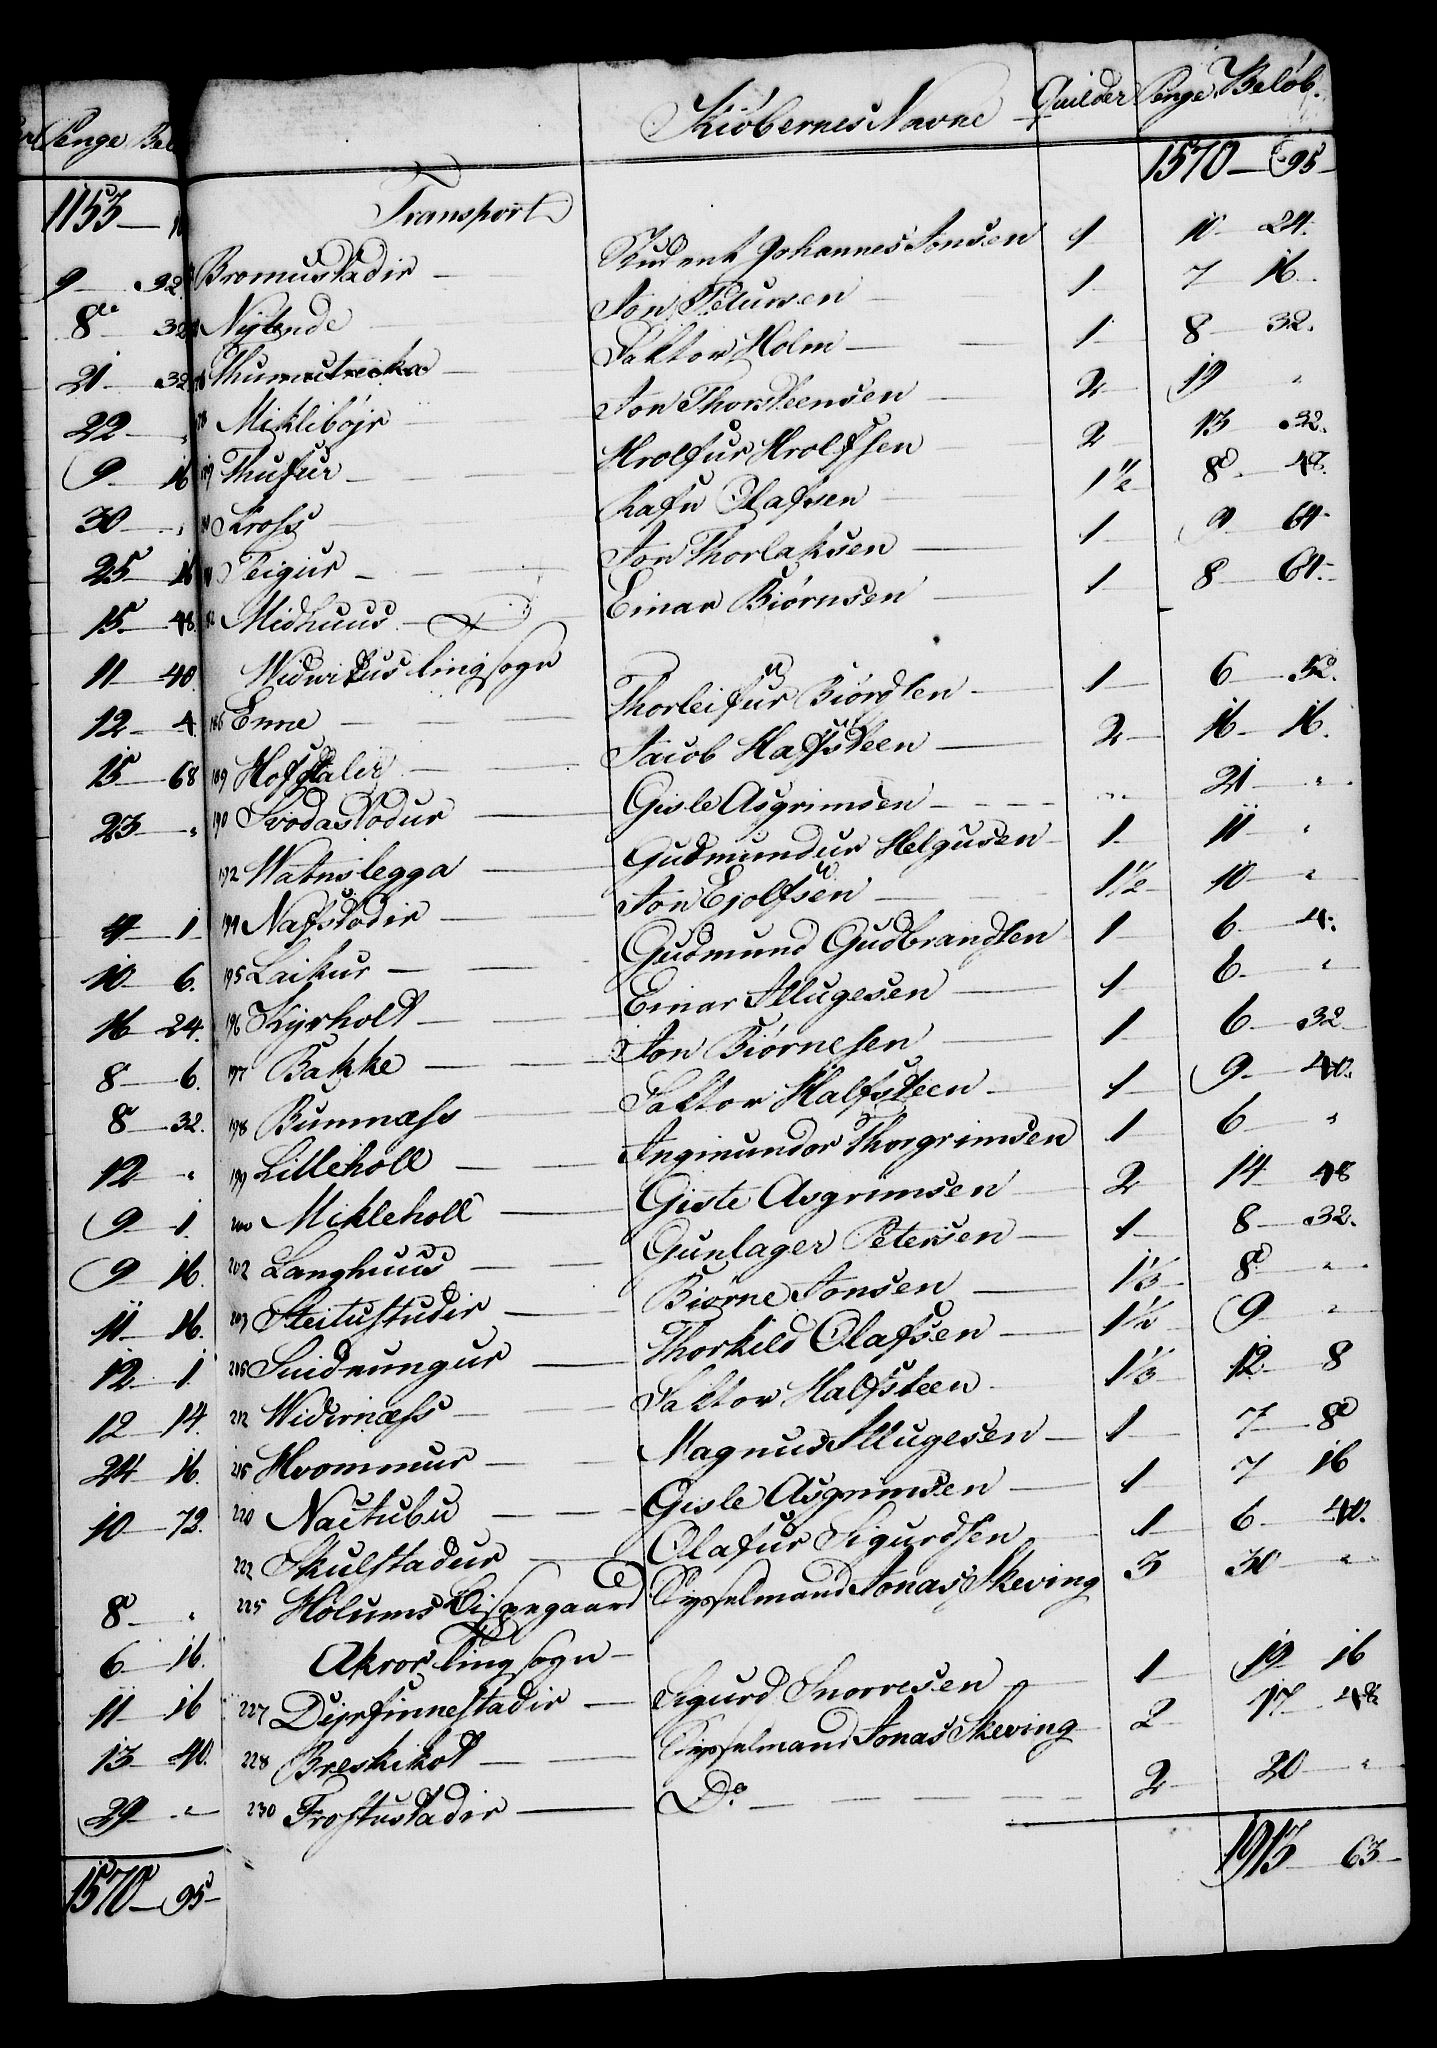 Penge Bel
1153
9 — 92
8 — 32
21 — 32
22 — "
9 — 16
30 — "
25 — 16
15 — 48
11 — 40
12 — 4
15 — 68
23 — "
4 — 1
10 — 6.
16 — 24.
8 — 6.
8 — 32.
12 — "
9 — 1.
9 — 16.
11 — 16.
12 — 1
12 — 14.
24 — 16.
10 — 72.
8 — "
6 — 16.
11 — 16
13 — 40.
29 — "
1570 — 95
Kiöbernes Navne Quilder Penge Belöb.
Transport 1570 — 95
Bromustadir — Student Johannes Jonsen 1 10 — 24.
Nylende Jon Petursen 1 7 — 16
Faktor Holm — 1 8 — 32.
Miklibòjr Jon Thorsteensen 2 19 "
Thufur — Hrolfur Hrolfsen 2 13 — 32.
Kross Rafn Olafsen 1½ 8 — 48.
Teigur — Jon Thorlaksen 1 9 — 64
Midhuus — Einar Biörnsen 1 8 — 64.
Widwikus tingsogn
186 Enne — Thorleifur Biördsen 1 6 — 52.
189 Hofstaler — Jacob Hafsteen 2 16 — 16.
190 Svodastodur — Gisle Asgrimsen — " 21 — "
192 Watnslegga — Gudmundur Helgusen 1 11 "
194 Nafstodir — Jon Ejolfsen 1½ 10 — "
195 Laikur — Gudmund Gudbrandsen 1 6 — 4.
196 Kyrholt — Einar Illugesen 1 6 — "
197 Bakke — Jon Biörnesen 1 6 — 32
198 Bumnæss Faktor Halfsteen 1 9 — 40.
199 Lilleholl — Ingimundor Thorgrimsen 1 6 — "
200 Mikleholl — Gisle Asgrimsen 2 14 — 48
202 Langhuus — Gunlager Petersen — 1 8 — 32.
203 Steitustudir — Biörne Jonsen — 1⅓ 8 — "
205 Suidnungur — Thorkild Olafsen — 1½ 9 — "
212 Widirnæss — Faktor Halfsteen 1⅓ 12 8
215 Hvommur — Magnus Illugesen — 1 7 — 8
220 Nautubu — Gisle Asgrimsen — 1 7 — 16
222 Skulstadur — Olafur Sigurdsen 1 6 — 40.
225 Holums Bispegaard Sysselmand Jonas Skeving 3 30 — "
Akror tingsogn —
227 Dyrfinnestadir — Sigurd Snorresen 1 19 — 16
228 Breskikot — Sysselmand Jonas Skeving 2 17 — 48
230 Frostustadir — Do — 2 20 — "
1913 — 63